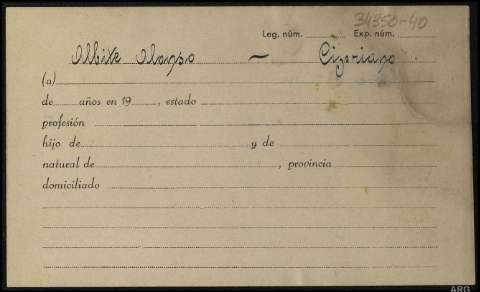 34350-40
Leg. núm. Exp. núm.
Albite Alonso — Cipriano
(a)
de años en 19 , estado
profesión
hijo de y de
natural de , provincia
domiciliado
ARG